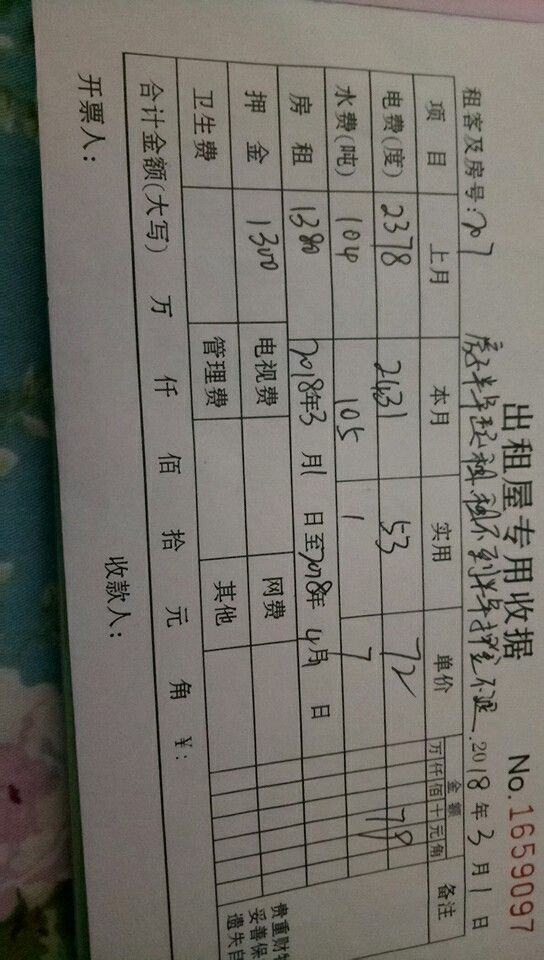 出租屋专用收据 No.1659097
房子半年起租.租不到半年押金不退.
租客及房号:707 2018年3月1日
项目 上月 本月 实用 单价 金额 备注
万 仟 佰 十 元 角
电费(度) 2378 2431 53 72 79
水费(吨) 104 105 1 7
房租 1380 2018年3月1日至2018年4月 日
押金 1300 电视费 网费
卫生费 管理费 其他
合计金额(大写) 万 仟 佰 拾 元 角 ¥:
开票人: 收款人:
贵重财物
妥善保
遗失自